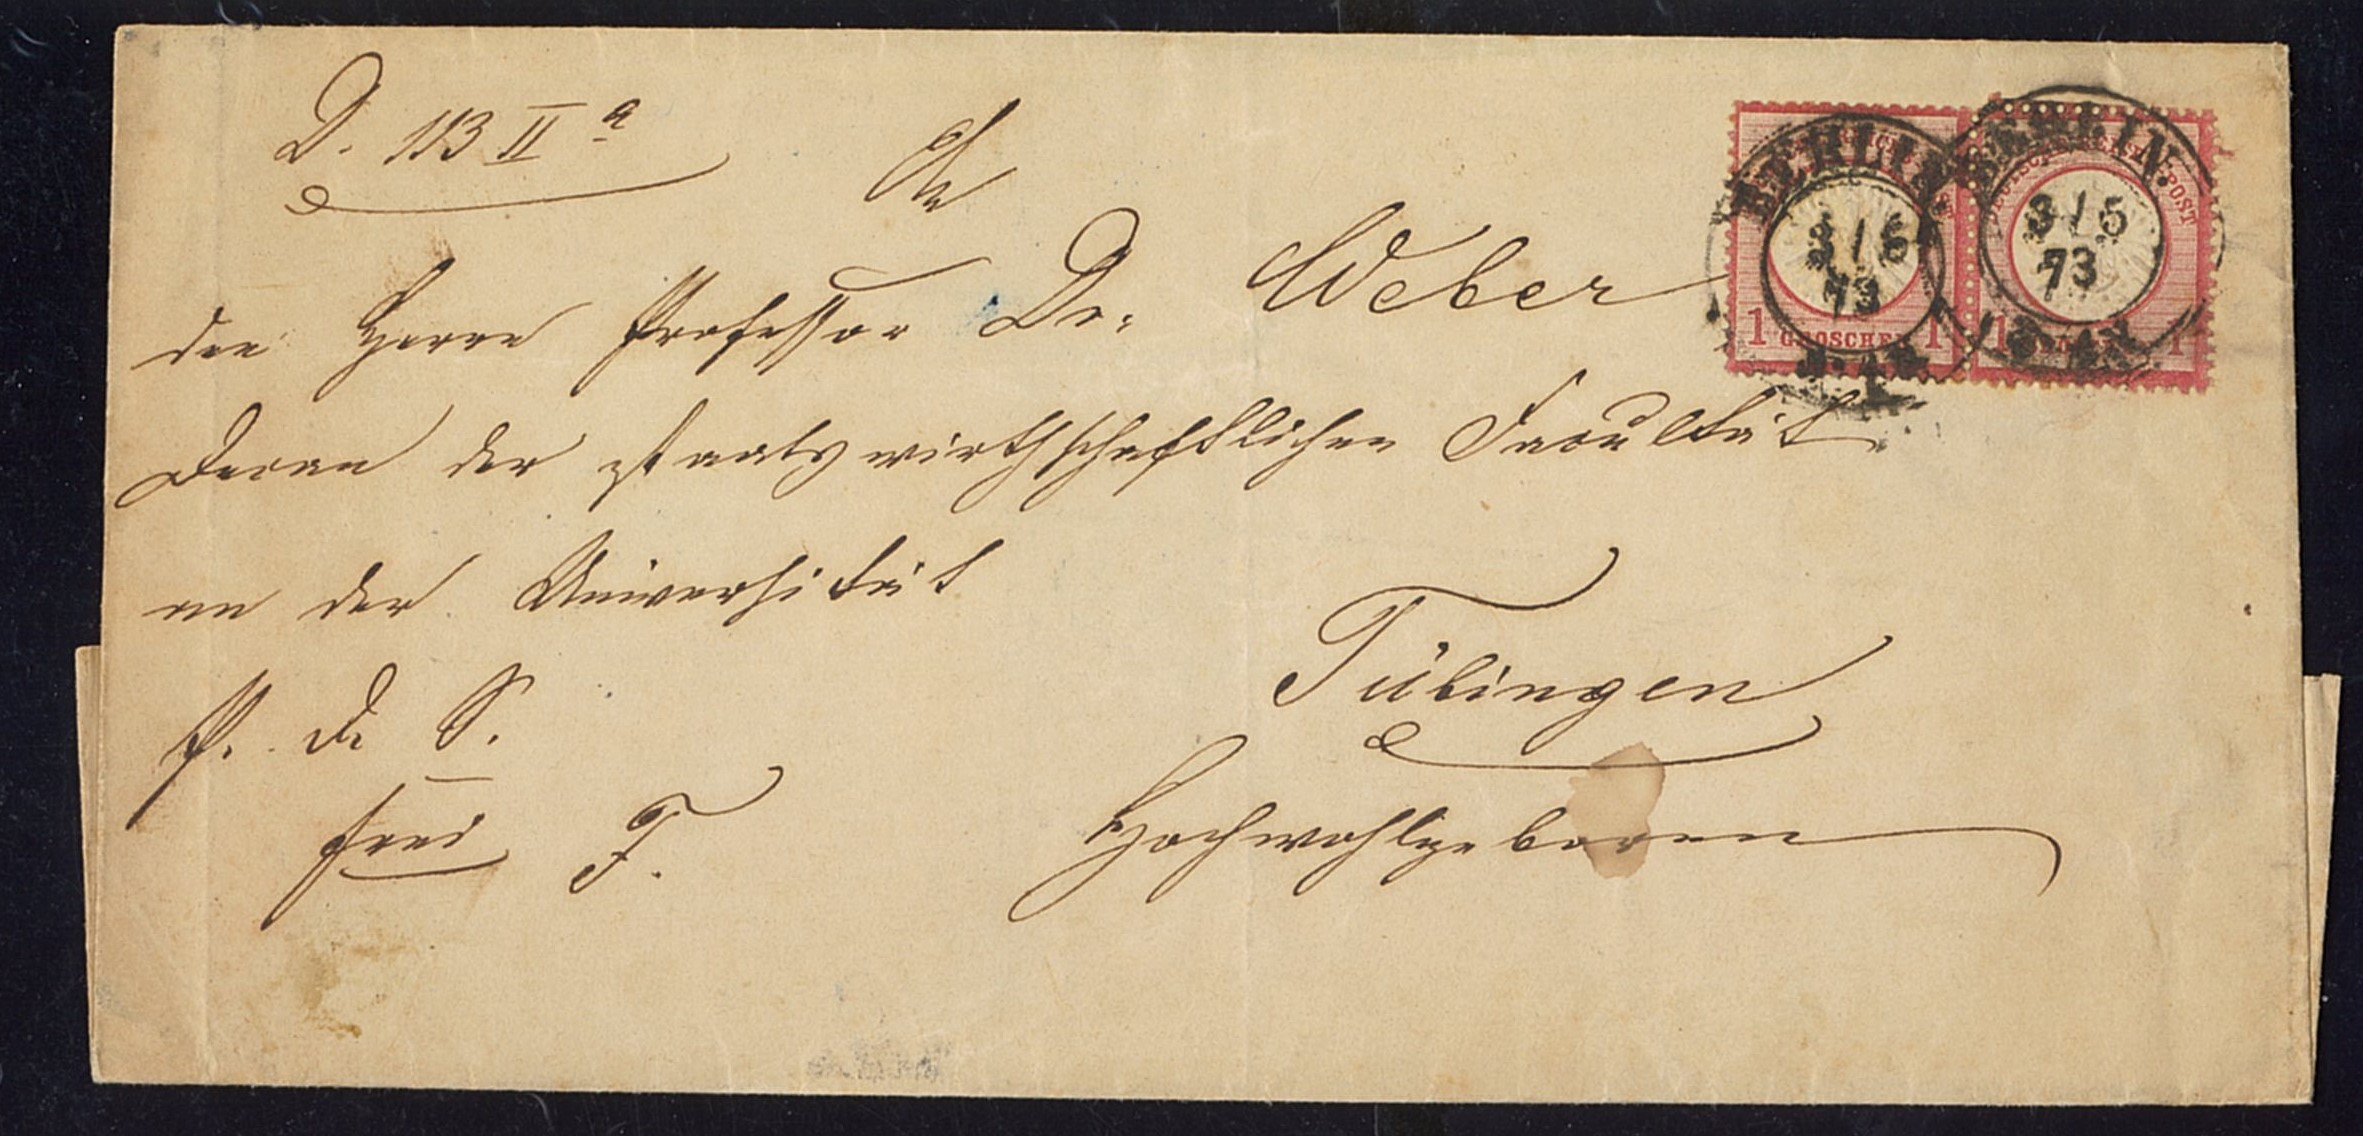 D. 113 II a
An
den Herrn Professor Dr. Weber
Decan der staatswirthschaftlichen Facultät
an der Universität
Tübingen
P. D. S.
frei F.
Hochwohlgeboren
BERLIN
3/5
73
1 GROSCHEN 1
BERLIN.
DEUTSCHE REICHS-POST
3/5
73
1